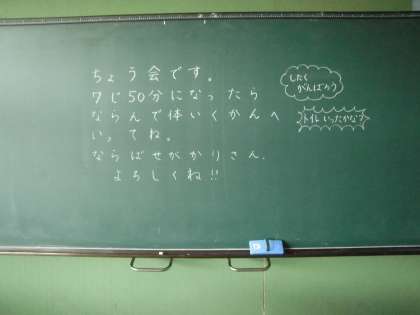 ちょう会です。
7じ50分になったら
ならんで体いくかんへ
いってね。
ならばせがかりさん、
よろしくね!!
したく
がんばろう
トイレいったかな?